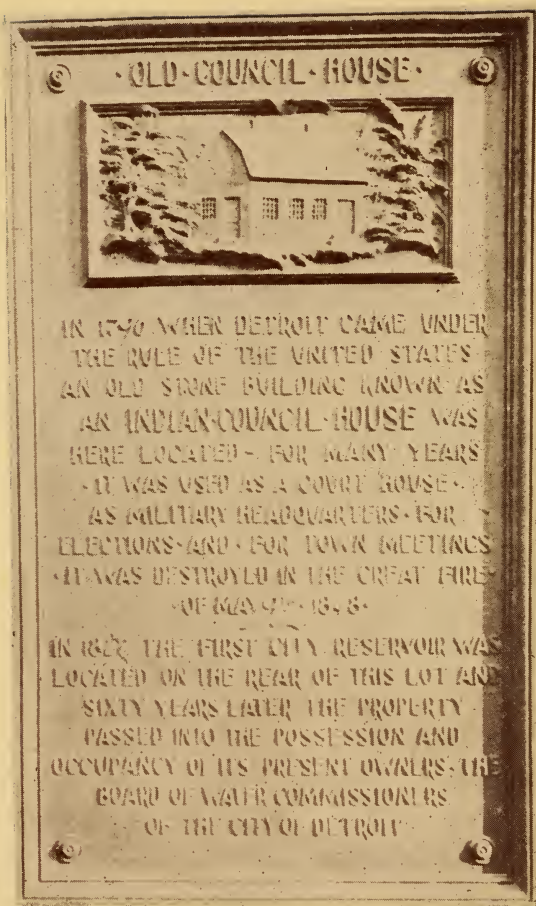 ·OLD·COUNCIL·HOUSE·
IN 1796 WHEN DETROIT CAME UNDER
THE RULE OF THE UNITED STATES
AN OLD STONE BUILDING KNOWN AS
AN INDIAN·COUNCIL·HOUSE WAS
HERE LOCATED - FOR MANY YEARS
·IT WAS USED AS A COURT HOUSE·
AS MILITARY HEADQUARTERS·FOR
ELECTIONS·AND·FOR TOWN MEETINGS
·IT WAS DESTROYED IN THE GREAT FIRE·
·OF MAY 1848·
IN THE FIRST CITY RESERVOIR WAS
LOCATED ON THE REAR OF THIS LOT AND
SIXTY YEARS LATER THE PROPERTY
PASSED INTO THE POSSESSION AND
OCCUPANCY OF ITS PRESENT OWNERS, THE
BOARD OF WATER COMMISSIONERS
OF THE CITY OF DETROIT